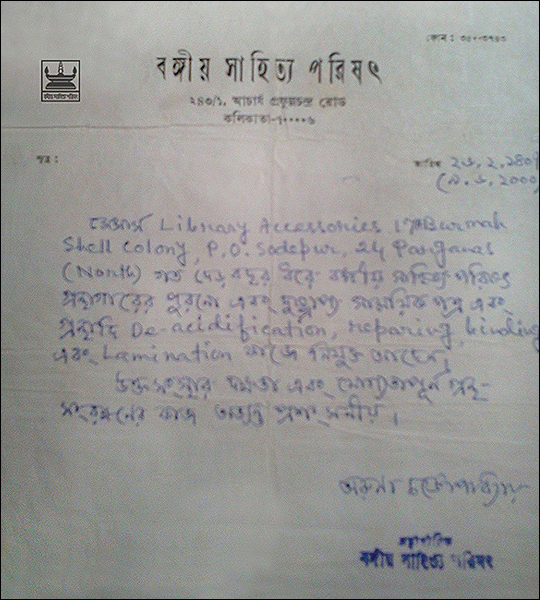 ফোন : ৩৫০-৩৭৪৩
বঙ্গীয় সাহিত্য পরিষৎ
বঙ্গীয় সাহিত্য পরিষৎ
২৪৩/১, আচার্য প্রফুল্লচন্দ্র রোড
কলিকাতা-৭০০০০৬
পত্র :
তারিখ ২৬.২.১৪০৭
(৯.৬.২০০০)
মেসার্স Library Accessories 17 Burmah
Shell Colony, P.O. Sodepur, 24 Parganas
(North) গত দেড় বছর ধরে বঙ্গীয় সাহিত্য পরিষৎ
গ্রন্থাগারের পুরনো এবং দুষ্প্রাপ্য সাময়িক পত্র এবং
গ্রন্থাদি De-acidification, reparing, binding
এবং Lamination কাজে নিযুক্ত আছেন।
উক্ত সংস্থার দক্ষতা এবং যোগ্যতাপূর্ণ গ্রন্থ-
সংরক্ষনের কাজ অত্যন্ত প্রশংসনীয়।
অরুণা চট্টোপাধ্যায়
গ্রন্থাগারিক
বঙ্গীয় সাহিত্য পরিষৎ